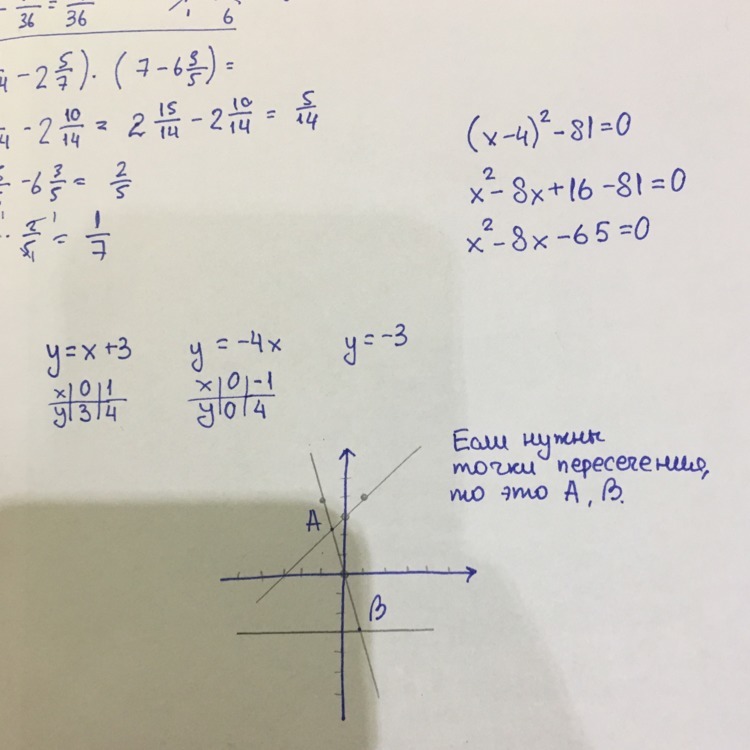 36 = 36 6
4 - 2 5/7) · (7 - 6 3/5) =
4 - 2 10/14 = 2 15/14 - 2 10/14 = 5/14
5 - 6 3/5 = 2/5
· 2/5 = 1/7
(x-4)² - 81 = 0
x² - 8x + 16 - 81 = 0
x² - 8x - 65 = 0
y = x + 3 y = -4x y = -3
x 0 1 x 0 -1
y 3 4 y 0 4
Если нужны
точки пересечения,
то это А, В.
A
B